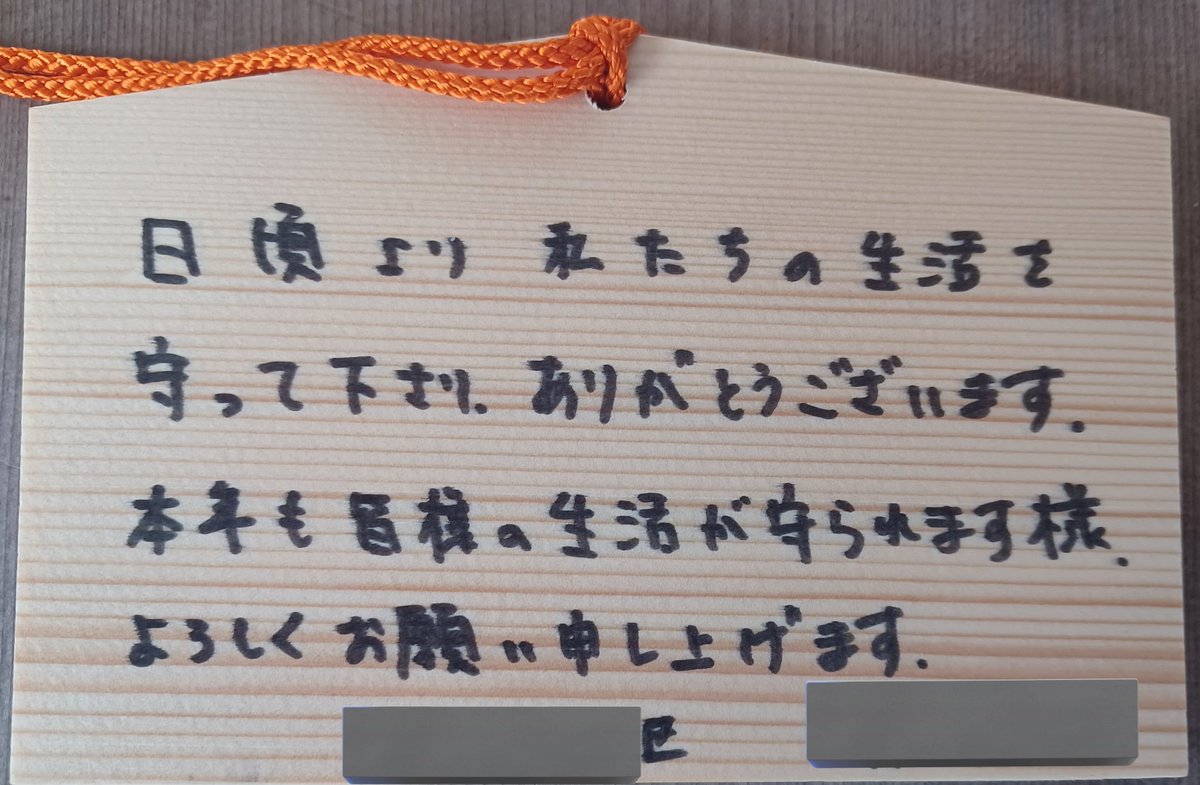 日頃より私たちの生活を
守って下さり、ありがとうございます.
本年も皆様の生活が守られます様.
よろしくお願い申し上げます.
巳